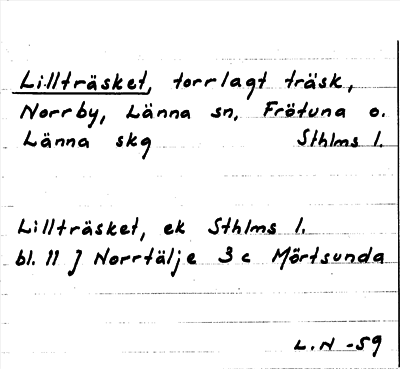 Lillträsket, torrlagt träsk,
Norrby, Länna sn, Frötuna o.
Länna skg Sthlms l.
Lillträsket, ek Sthlms l.
bl. 11 J Norrtälje 3 c Mörtsunda
L.N -59